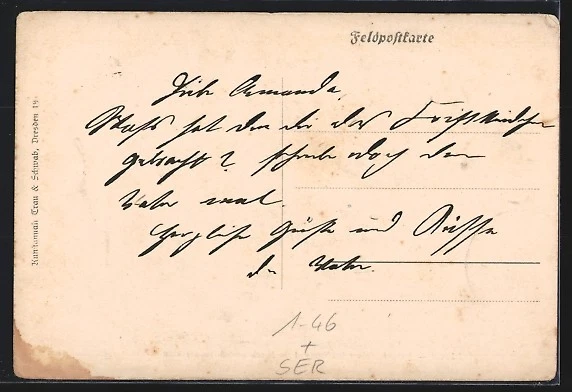 Feldpostkarte
Liebe Amanda,
hat denn dir das
gebracht? schreibe doch dem
Vater mal.
Herzliche Grüße und Küsse
dein Vater.
Kunstanstalt Trau & Schwab, Dresden 19.
1-46
+
SER